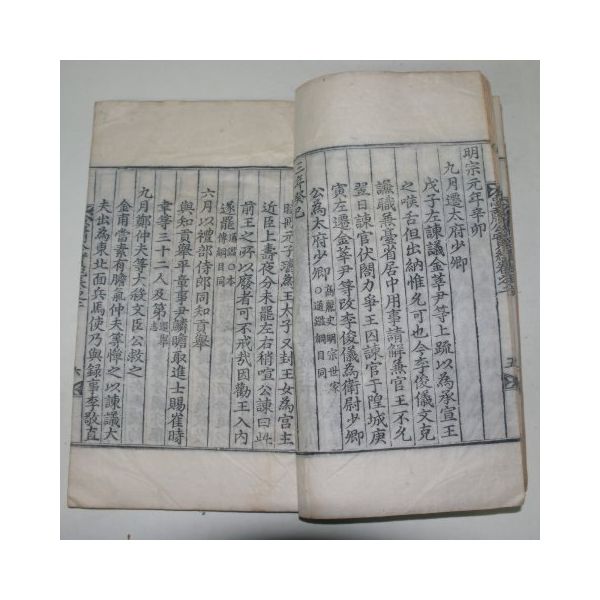 明宗元年辛卯
九月遷太府少卿
戊子左諫議金莘尹等上疏以為承宣王
之喉舌但出納惟允可也今李俊儀文克
謙職兼臺省居中用事請解兼官王不允
翌日諫官伏閤力爭王囚諫官于隍城庚
寅左遷金莘尹等改李俊儀為衛尉少卿
公為太府少卿 高麗史明宗世家 ○通鑑綱目同
三年癸巳
冊元子璹為王太子又封王女為宮主
近臣上壽夜分未罷左右稍喧公諫曰此
前王之所以廢者可不戒哉因勸王入內
遂罷 通鑑○本傳綱目同
六月以禮部侍郎同知貢舉
與知貢舉平章事尹鱗瞻取進士賜崔時
幸等三十二人及第 選舉志
九月鄭仲夫等大殺文臣公救之
金甫當素有膽氣仲夫等憚之以諫議大
夫出為東北面兵馬使乃與錄事李敬直
五
六